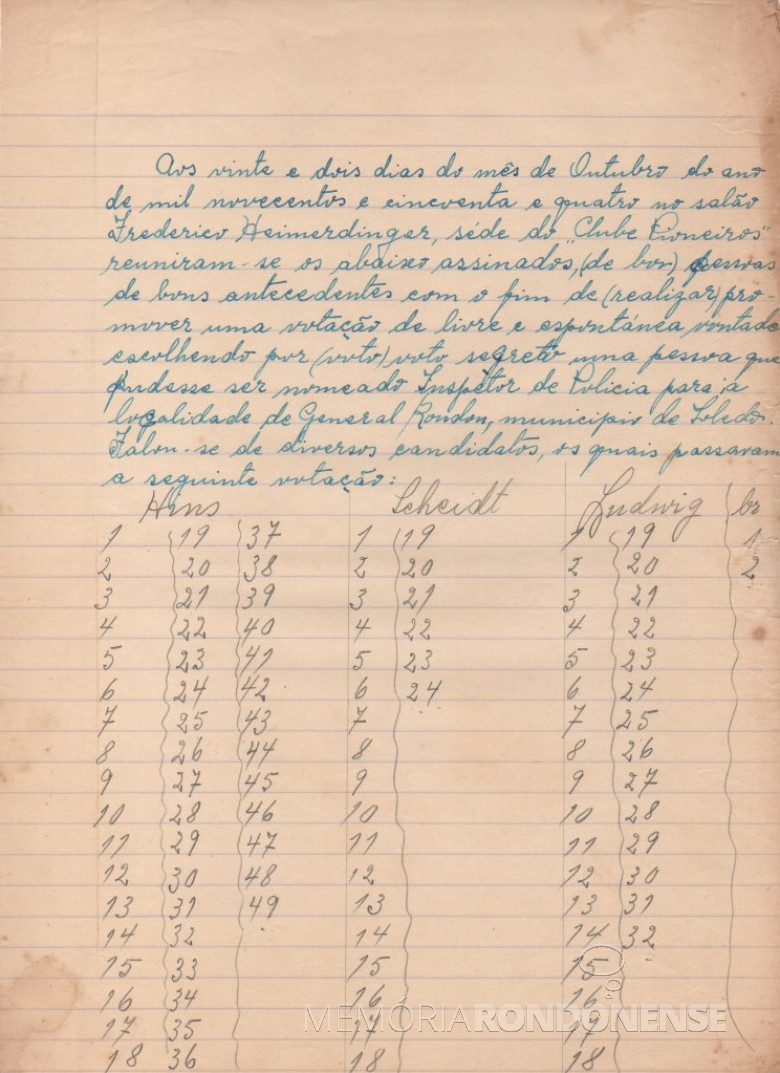 Aos vinte e dois dias do mês de Outubro do ano
de mil novecentos e cincventa e quatro no salão
Frederico Heimerdinger, séde do „Clube Pioneiros"
reuniram-se os abaixo assinados, (de bon) pessoas
de bons antecedentes com o fim de (realizar) pro-
mover uma votação de livre e espontánea vontade
escolhendo por (voto) voto segreto uma pessoa que
pudesse ser nomeado Inspétor de Policia para a
localidade de General Rondon, municipio de Toledo.
Falou-se de diversos candidatos, os quais passavam
a seguinte votação:
Hins Scheidt Ludwig br
1 19 37 1 19 1 19 1
2 20 38 2 20 2 20 2
3 21 39 3 21 3 21
4 22 40 4 22 4 22
5 23 41 5 23 5 23
6 24 42 6 24 6 24
7 25 43 7 7 25
8 26 44 8 8 26
9 27 45 9 9 27
10 28 46 10 10 28
11 29 47 11 11 29
12 30 48 12 12 30
13 31 49 13 13 31
14 32 14 14 32
15 33 15 15
16 34 16 16
17 35 17 17
18 36 18 18
MEMÓRIARONDONENSE